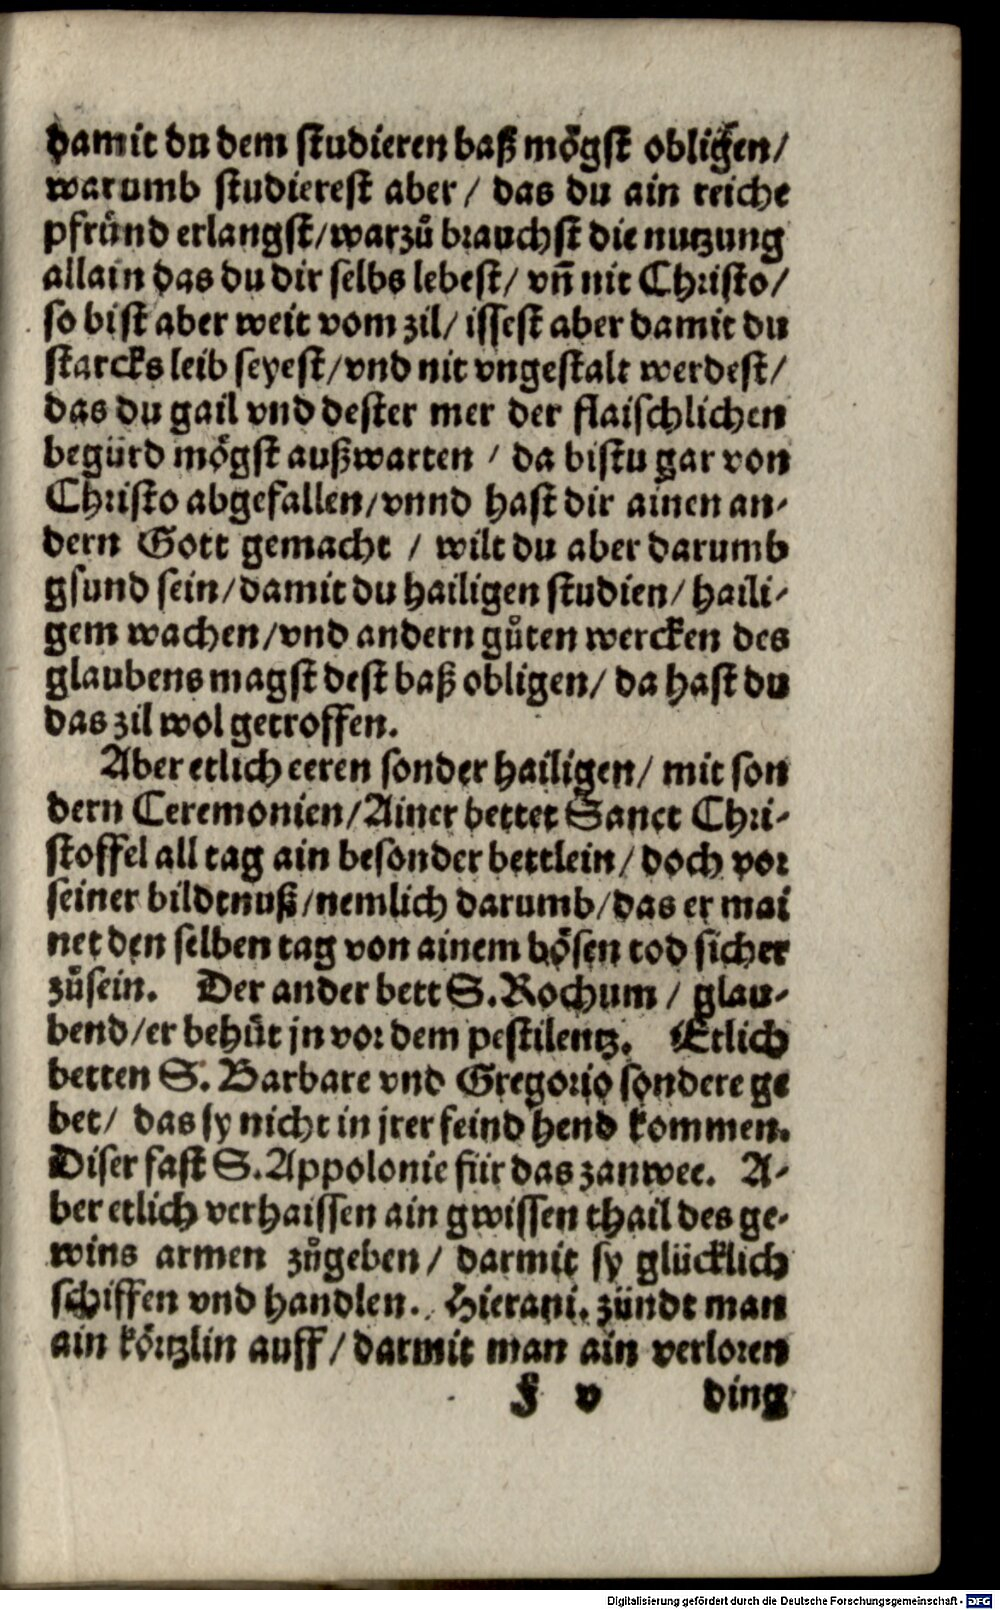 damit du dem studieren baß mögst obligen/
warumb studierest aber/ das du ain reiche
pfründ erlangst/warzů brauchst die nutzung
allain das du dir selbs lebest/ vñ nit Christo/
so bist aber weit vom zil/ issest aber damit du
starcks leib seyest/vnd nit vngestalt werdest/
das du gail vnd dester mer der flaischlichen
begürd mögst außwarten / da bistu gar von
Christo abgefallen/vnnd hast dir ainen an-
dern Gott gemacht / wilt du aber darumb
gsund sein/damit du hailigen studien/ haili-
gem wachen/vnd andern gůten wercken des
glaubens magst dest baß obligen/ da hast du
das zil wol getroffen.
Aber etlich eeren sonder hailigen/ mit son
dern Ceremonien/Ainer bettet Sanct Chri-
stoffel all tag ain besonder bettlein/ doch vor
seiner bildtnuß/nemlich darumb/das er mai
net den selben tag von ainem bösen tod sicher
zůsein. Der ander bett S.Rochum/ glau-
bend/er behüt jn vor dem pestilentz. Etlich
betten S. Barbare vnd Gregorio sondere ge
bet/ das sy nicht in jrer feind hend kommen.
Diser fast S.Appolonie für das zanwee. A-
ber etlich verhaissen ain gwissen thail des ge-
wins armen zůgeben/ darmit sy glücklich
schiffen vnd handlen. Hierani. zündt man
ain körtzlin auff/darmit man ain verloren
F v ding
Digitalisierung gefördert durch die Deutsche Forschungsgemeinschaft - DFG